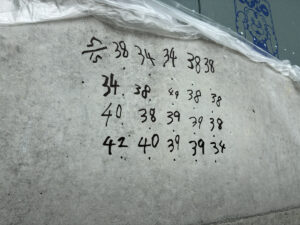 5/5 38 34 34 38 38
34 38 49 38 38
40 38 39 39 38
42 40 39 39 34